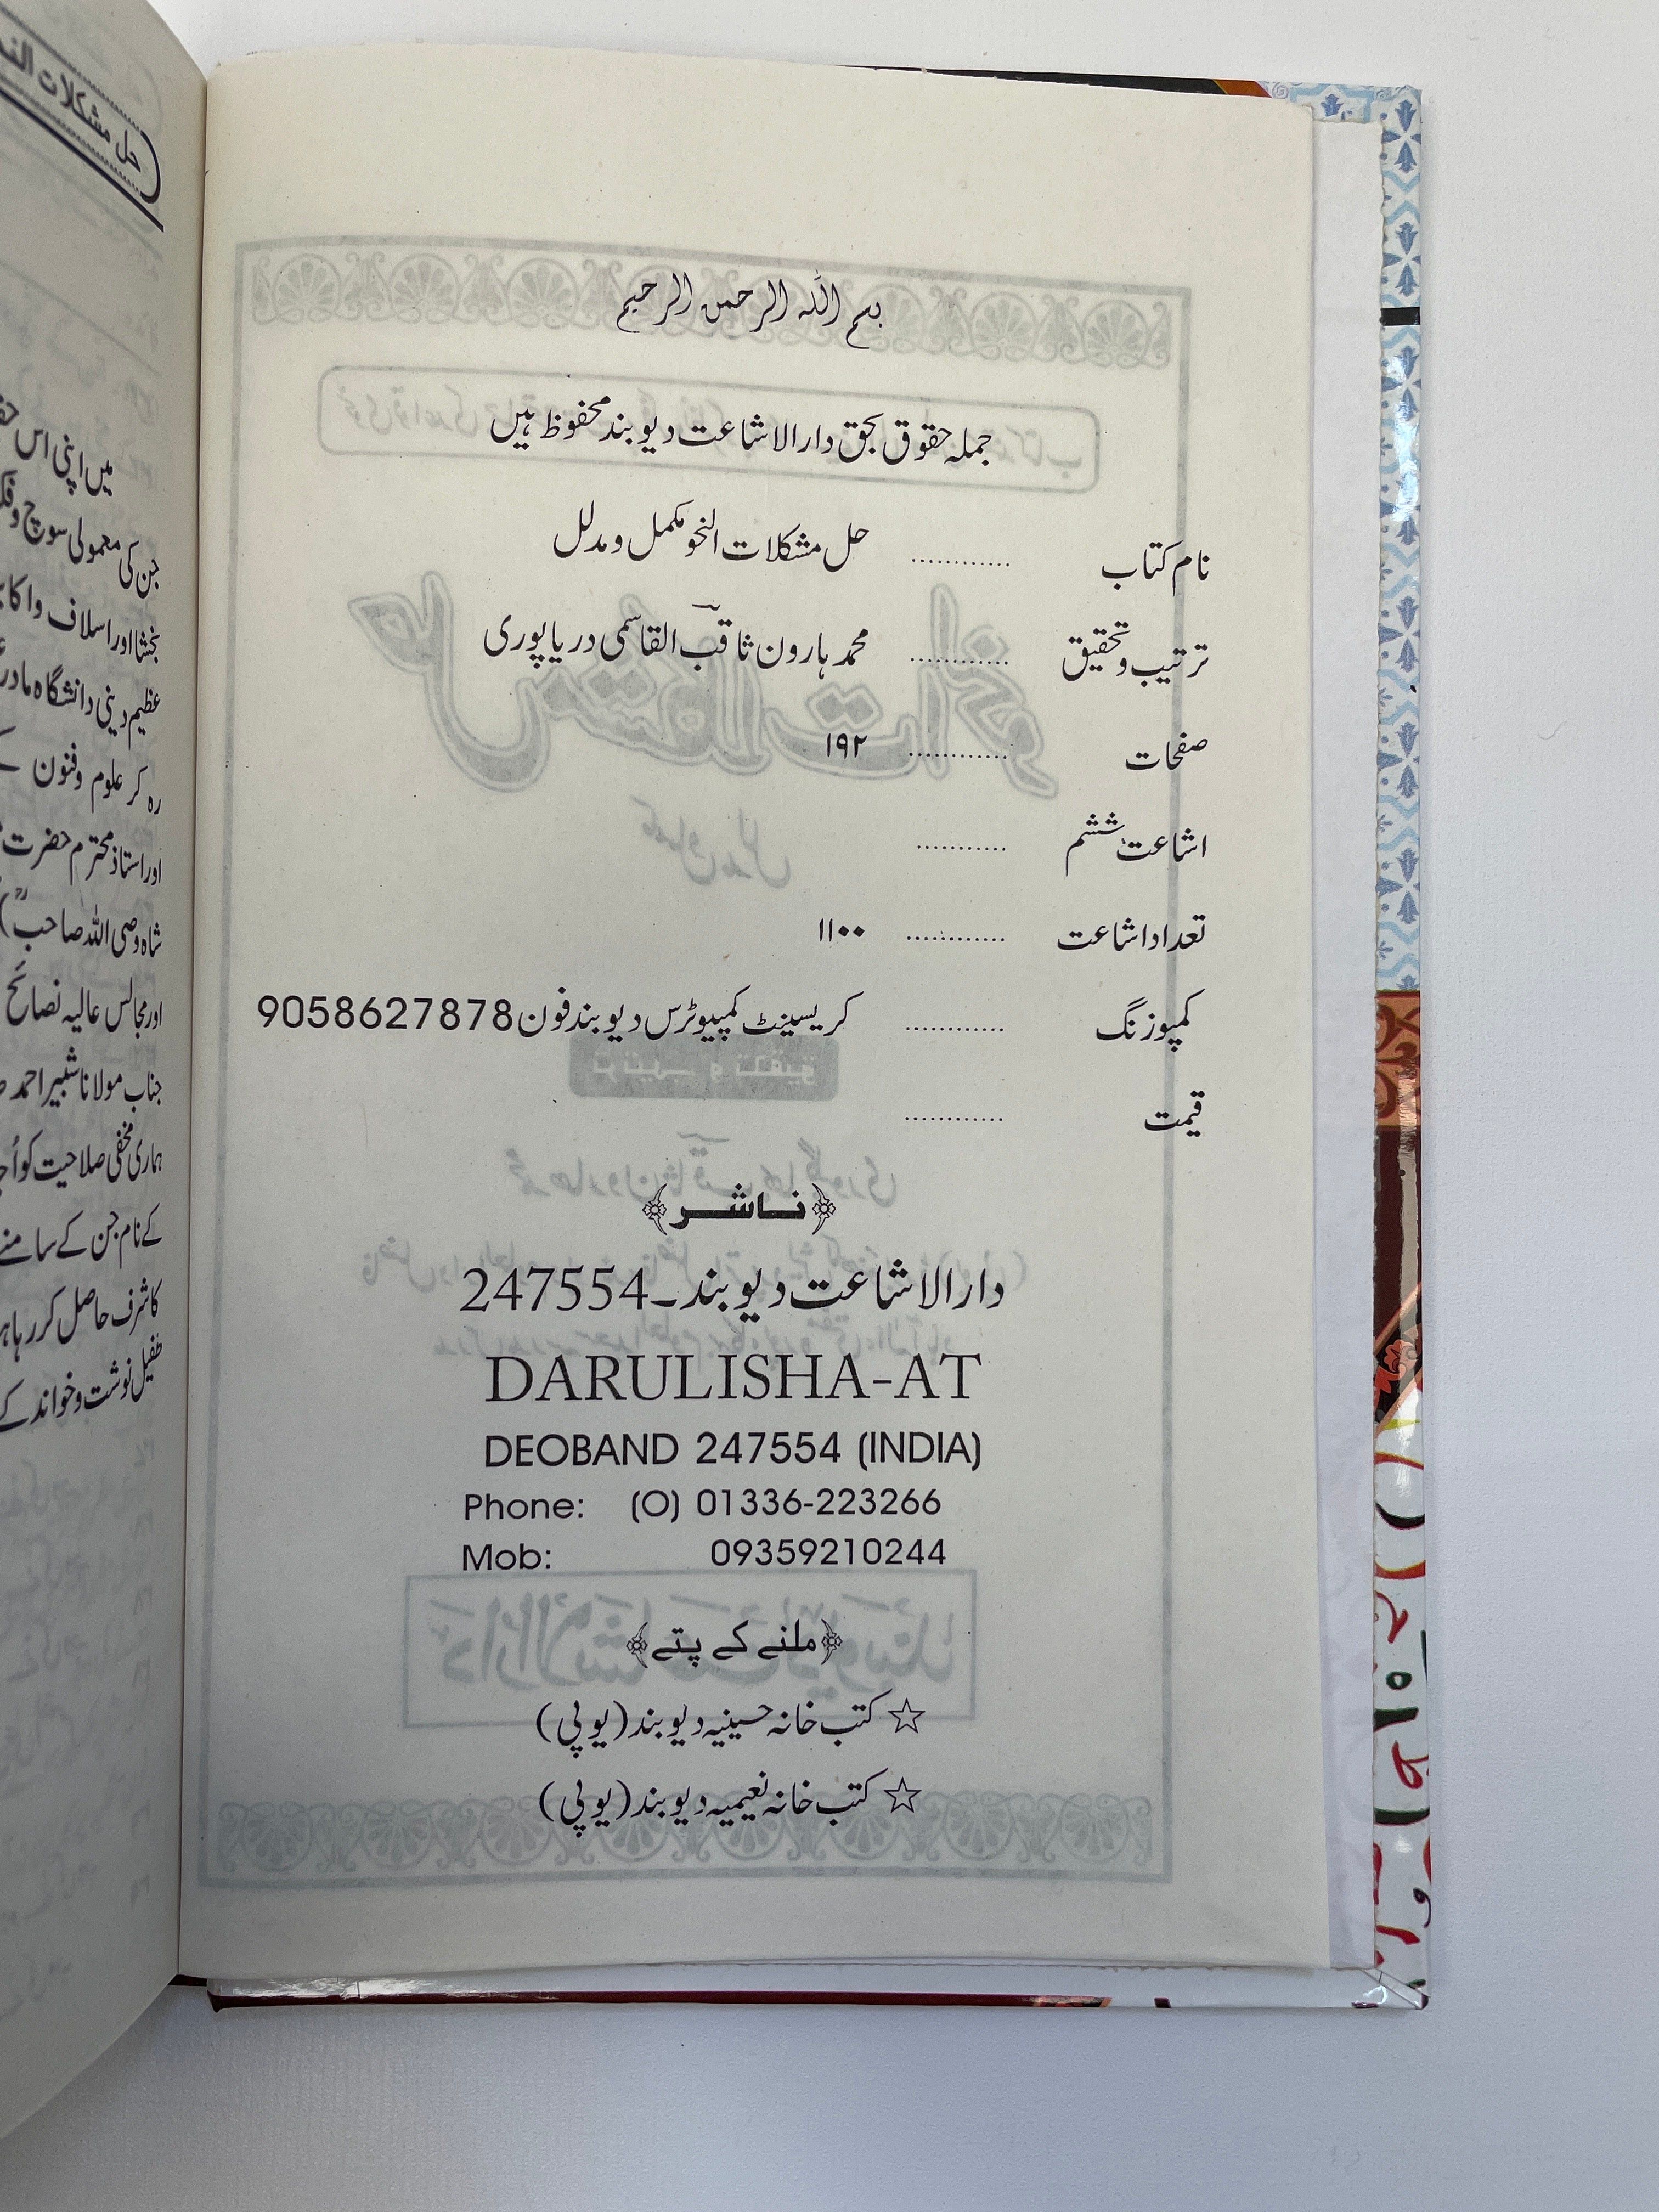 بسم اللہ الرحمن الرحیم
جملہ حقوق بحق دارالاشاعت دیوبند محفوظ ہیں
نام کتاب ............ حل مشکلات النحو مکمل و مدلل
ترتیب و تحقیق ............ محمد ہارون ثاقب القاسمی دریاپوری
صفحات ............ ۱۹۲
اشاعت ششم ............
تعداد اشاعت ............ ۱۱۰۰
کمپوزنگ ............ کریسینٹ کمپیوٹرس دیوبند فون 9058627878
قیمت ............
﴿ناشر﴾
دارالاشاعت دیوبند۔247554
DARULISHA-AT
DEOBAND 247554 (INDIA)
Phone: (O) 01336-223266
Mob: 09359210244
﴿ملنے کے پتے﴾
☆ کتب خانہ حسینیہ دیوبند (یوپی)
☆ کتب خانہ نعیمیہ دیوبند (یوپی)
حل مشکلات
میں اپنی اس
جن کی معمولی سوچ و
بخشا اور اسلاف و
عظیم دینی دانشگاہ
رہ کر علوم و فنون
اور استاذ محترم حضرت
شاہ وصی اللہ صاحبؒ)
اور مجالس عالیہ نصائح
جناب مولانا شبیر احمد
ہماری مخفی صلاحیت کو
کے نام جن کے سامنے
کا شرف حاصل کر رہا
طفیل نوشت و خواند کے